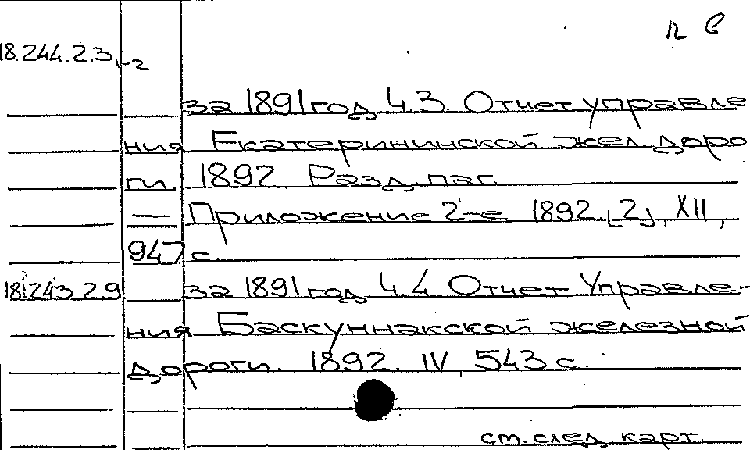 п б
18.244.2.3 1-2
за 1891 год Ч.3 Отчет управле
ния Екатерининской жел.доро
ги 1892 Разд.паг.
— Приложение 2-е 1892. [2], XII,
947 с
18.243.2.9 за 1891 год Ч.4 Отчет Управле-
ния Баскунчакской железной
дороги. 1892. IV, 543 с.
см.след. карт